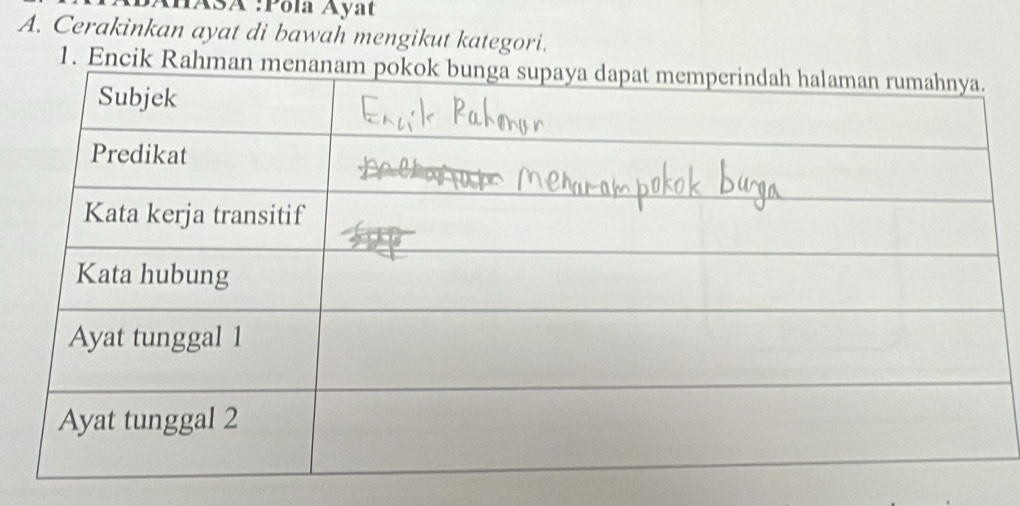 :Pola Ayat
A. Cerakinkan ayat di bawah mengikut kategori.
1. Encik Rahman menanam pokok bunga supaya dapat memperindah halaman rumahnya.
Subjek Encik Rahman
Predikat menanam pokok bunga
Kata kerja transitif
Kata hubung
Ayat tunggal 1
Ayat tunggal 2